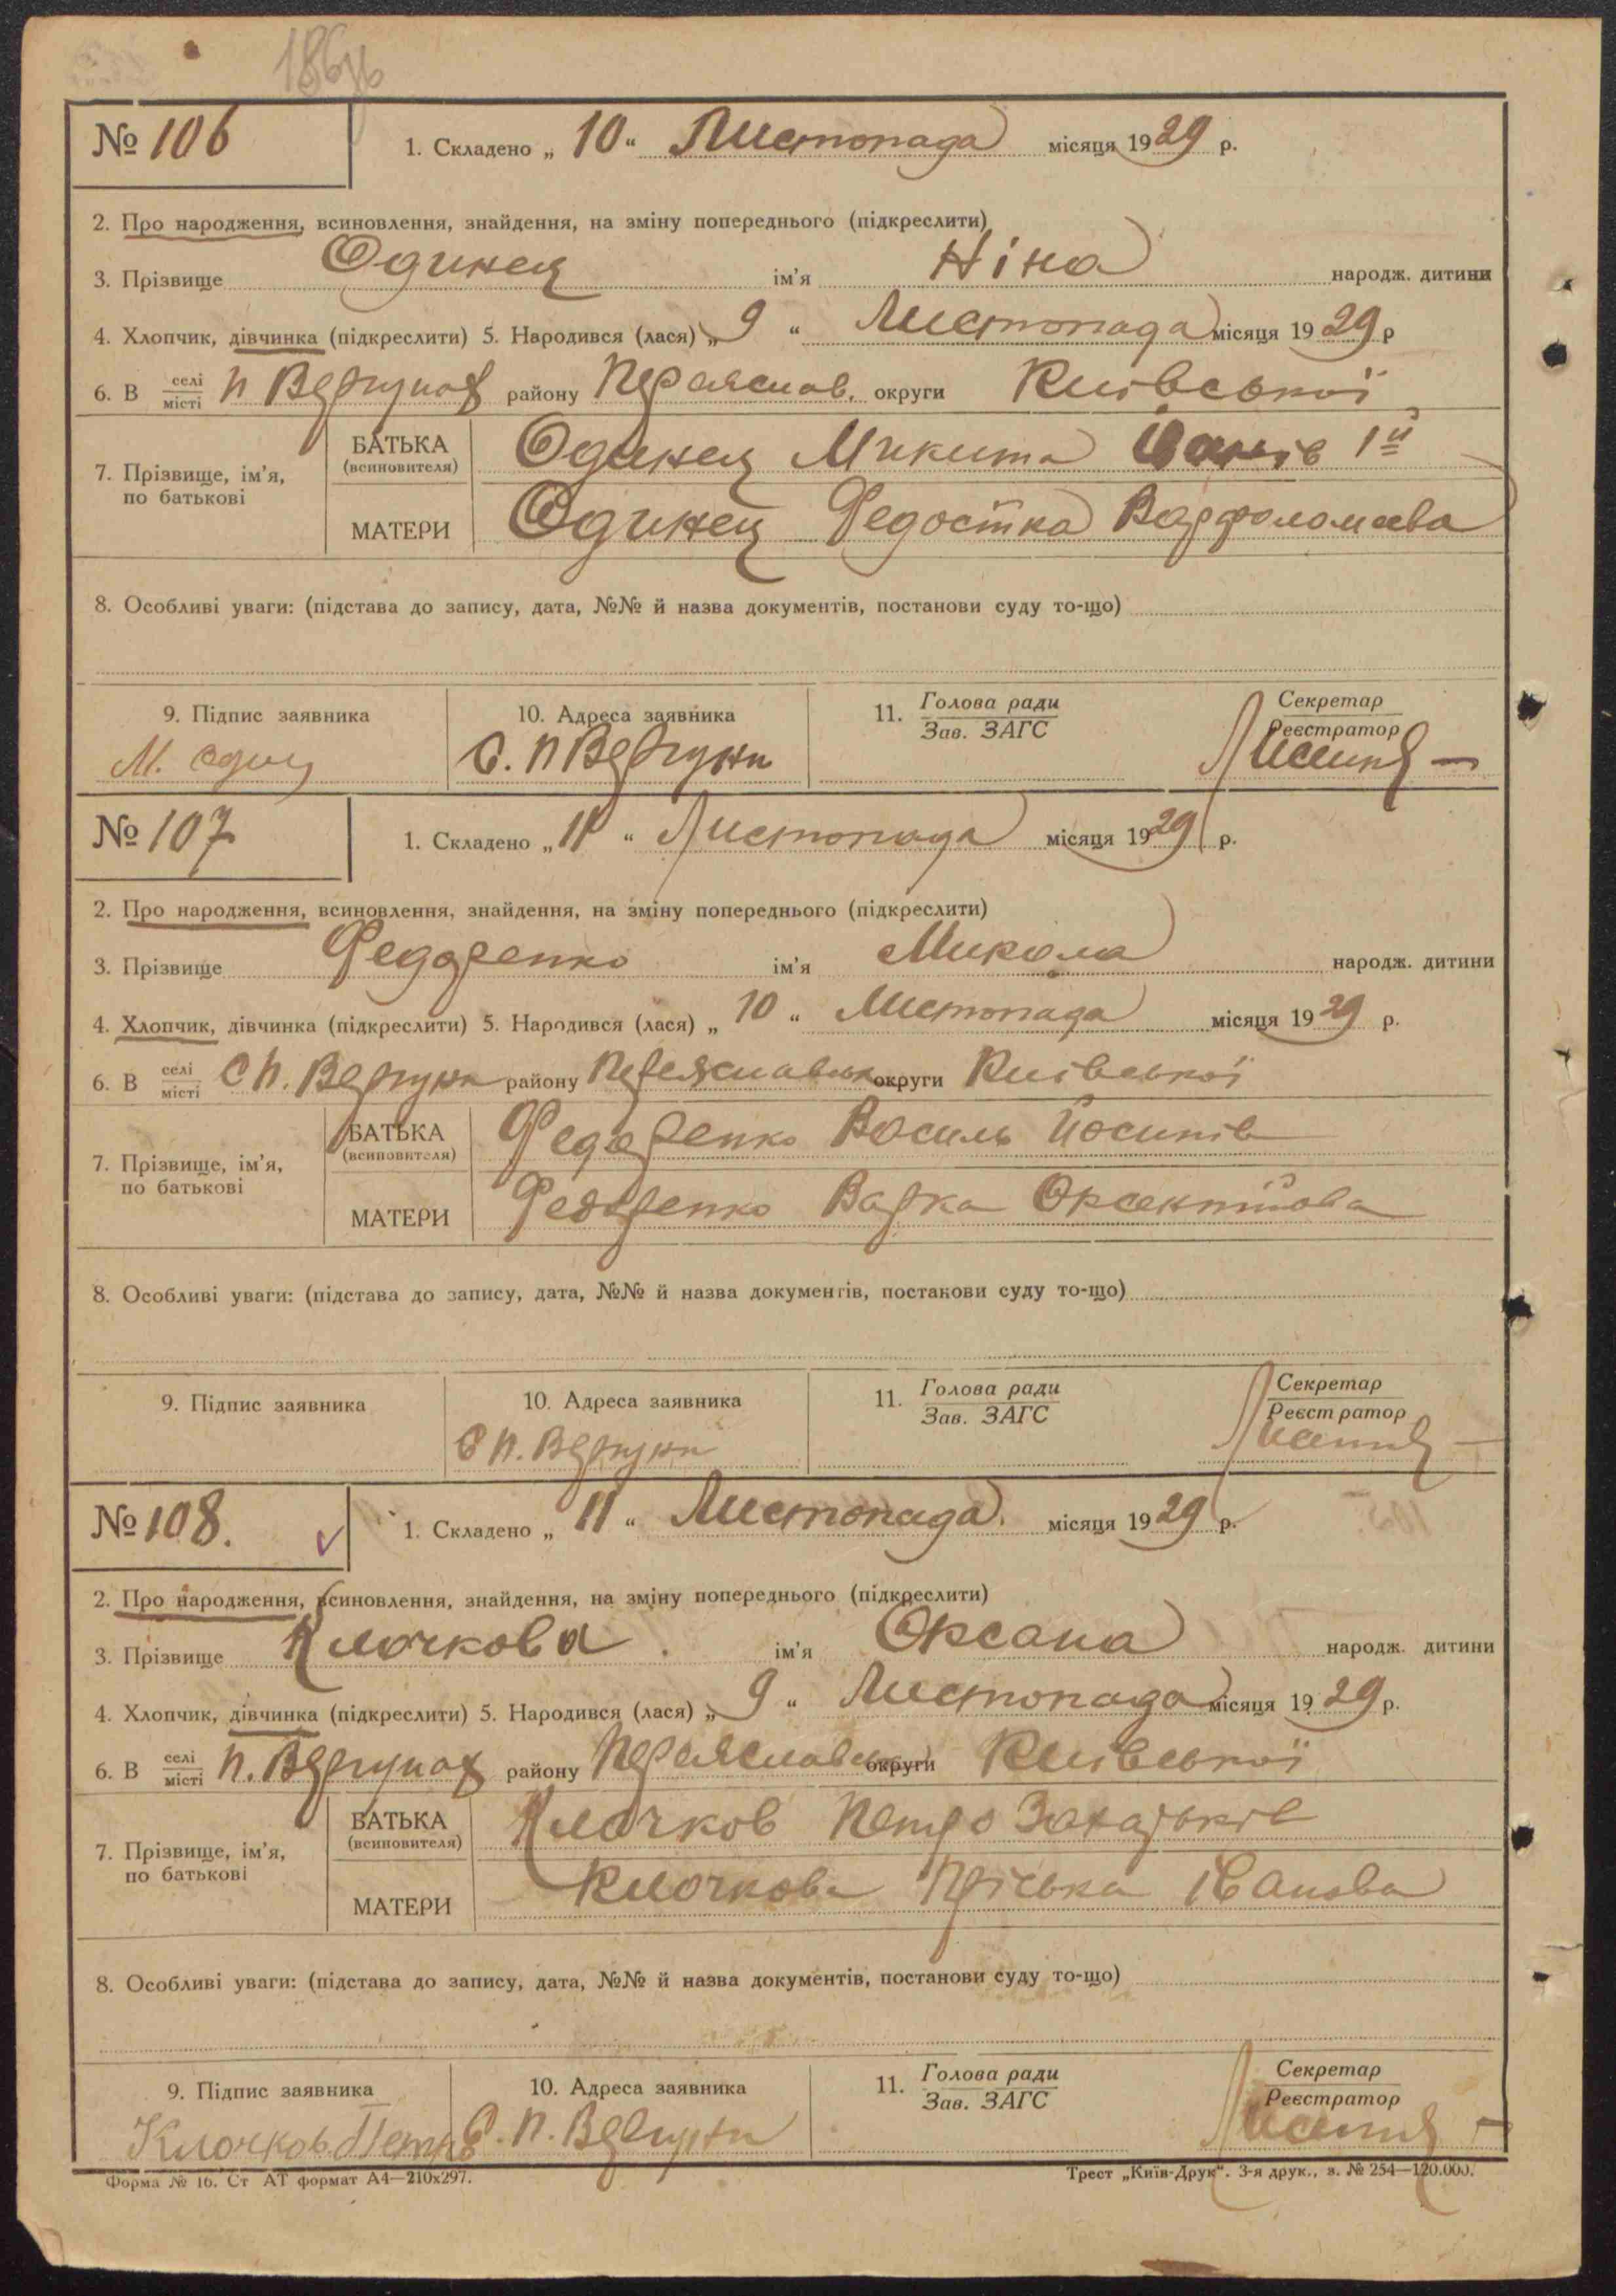 № 106
1. Складено „ 10 “ Листопада місяця 1929 р.
2. Про народження, всиновлення, знайдення, на зміну попереднього (підкреслити)
3. Прізвище Одинец ім'я Ніна народж. дитини
4. Хлопчик, дівчинка (підкреслити) 5. Народився (лася) „ 9 “ Листопада місяця 1929 р
6. В селі місті П Вергунах району Переяслав. округи Київської
7. Прізвище, ім'я, по батькові
БАТЬКА (всиновителя) Одинец Микита Іванів 1й
МАТЕРИ Одинец Федостка Варфоломеева
8. Особливі уваги: (підстава до запису, дата, №№ й назва документів, постанови суду то-що)
9. Підпис заявника 10. Адреса заявника 11. Голова ради Зав. ЗАГС Секретар Реєстратор
М. Один С. П Вергуни
№ 107
1. Складено „ 11 “ Листопада місяця 1929 р.
2. Про народження, всиновлення, знайдення, на зміну попереднього (підкреслити)
3. Прізвище Федоренко ім'я Микола народж. дитини
4. Хлопчик, дівчинка (підкреслити) 5. Народився (лася) „ 10 “ Листопада місяця 1929 р.
6. В селі місті С П. Вергуни району Переяславськ округи Київської
7. Прізвище, ім'я, по батькові
БАТЬКА (всиновителя) Федоренко Василь Йосипів
МАТЕРИ Федоренко Варка Оксентіїова
8. Особливі уваги: (підстава до запису, дата, №№ й назва документів, постанови суду то-що)
9. Підпис заявника 10. Адреса заявника 11. Голова ради Зав. ЗАГС Секретар Реєстратор
С П. Вергуни
№ 108.
1. Складено „ 11 “ Листопада. місяця 1929 р.
2. Про народження, всиновлення, знайдення, на зміну попереднього (підкреслити)
3. Прізвище Клочкова ім'я Оксана народж. дитини
4. Хлопчик, дівчинка (підкреслити) 5. Народився (лася) „ 9 “ Листопада місяця 1929 р.
6. В селі місті П. Вергунах району Переяславськ округи Київської
7. Прізвище, ім'я, по батькові
БАТЬКА (всиновителя) Клочков Петро Захарьків
МАТЕРИ Клочкова Пріська Іванова
8. Особливі уваги: (підстава до запису, дата, №№ й назва документів, постанови суду то-що)
9. Підпис заявника 10. Адреса заявника 11. Голова ради Зав. ЗАГС Секретар Реєстратор
Клочков Петро С. П. Вергуни
Форма № 16. Ст АТ формат А4—210х297. Трест „Київ-Друк“. 3-я друк., з. № 254—120.000.